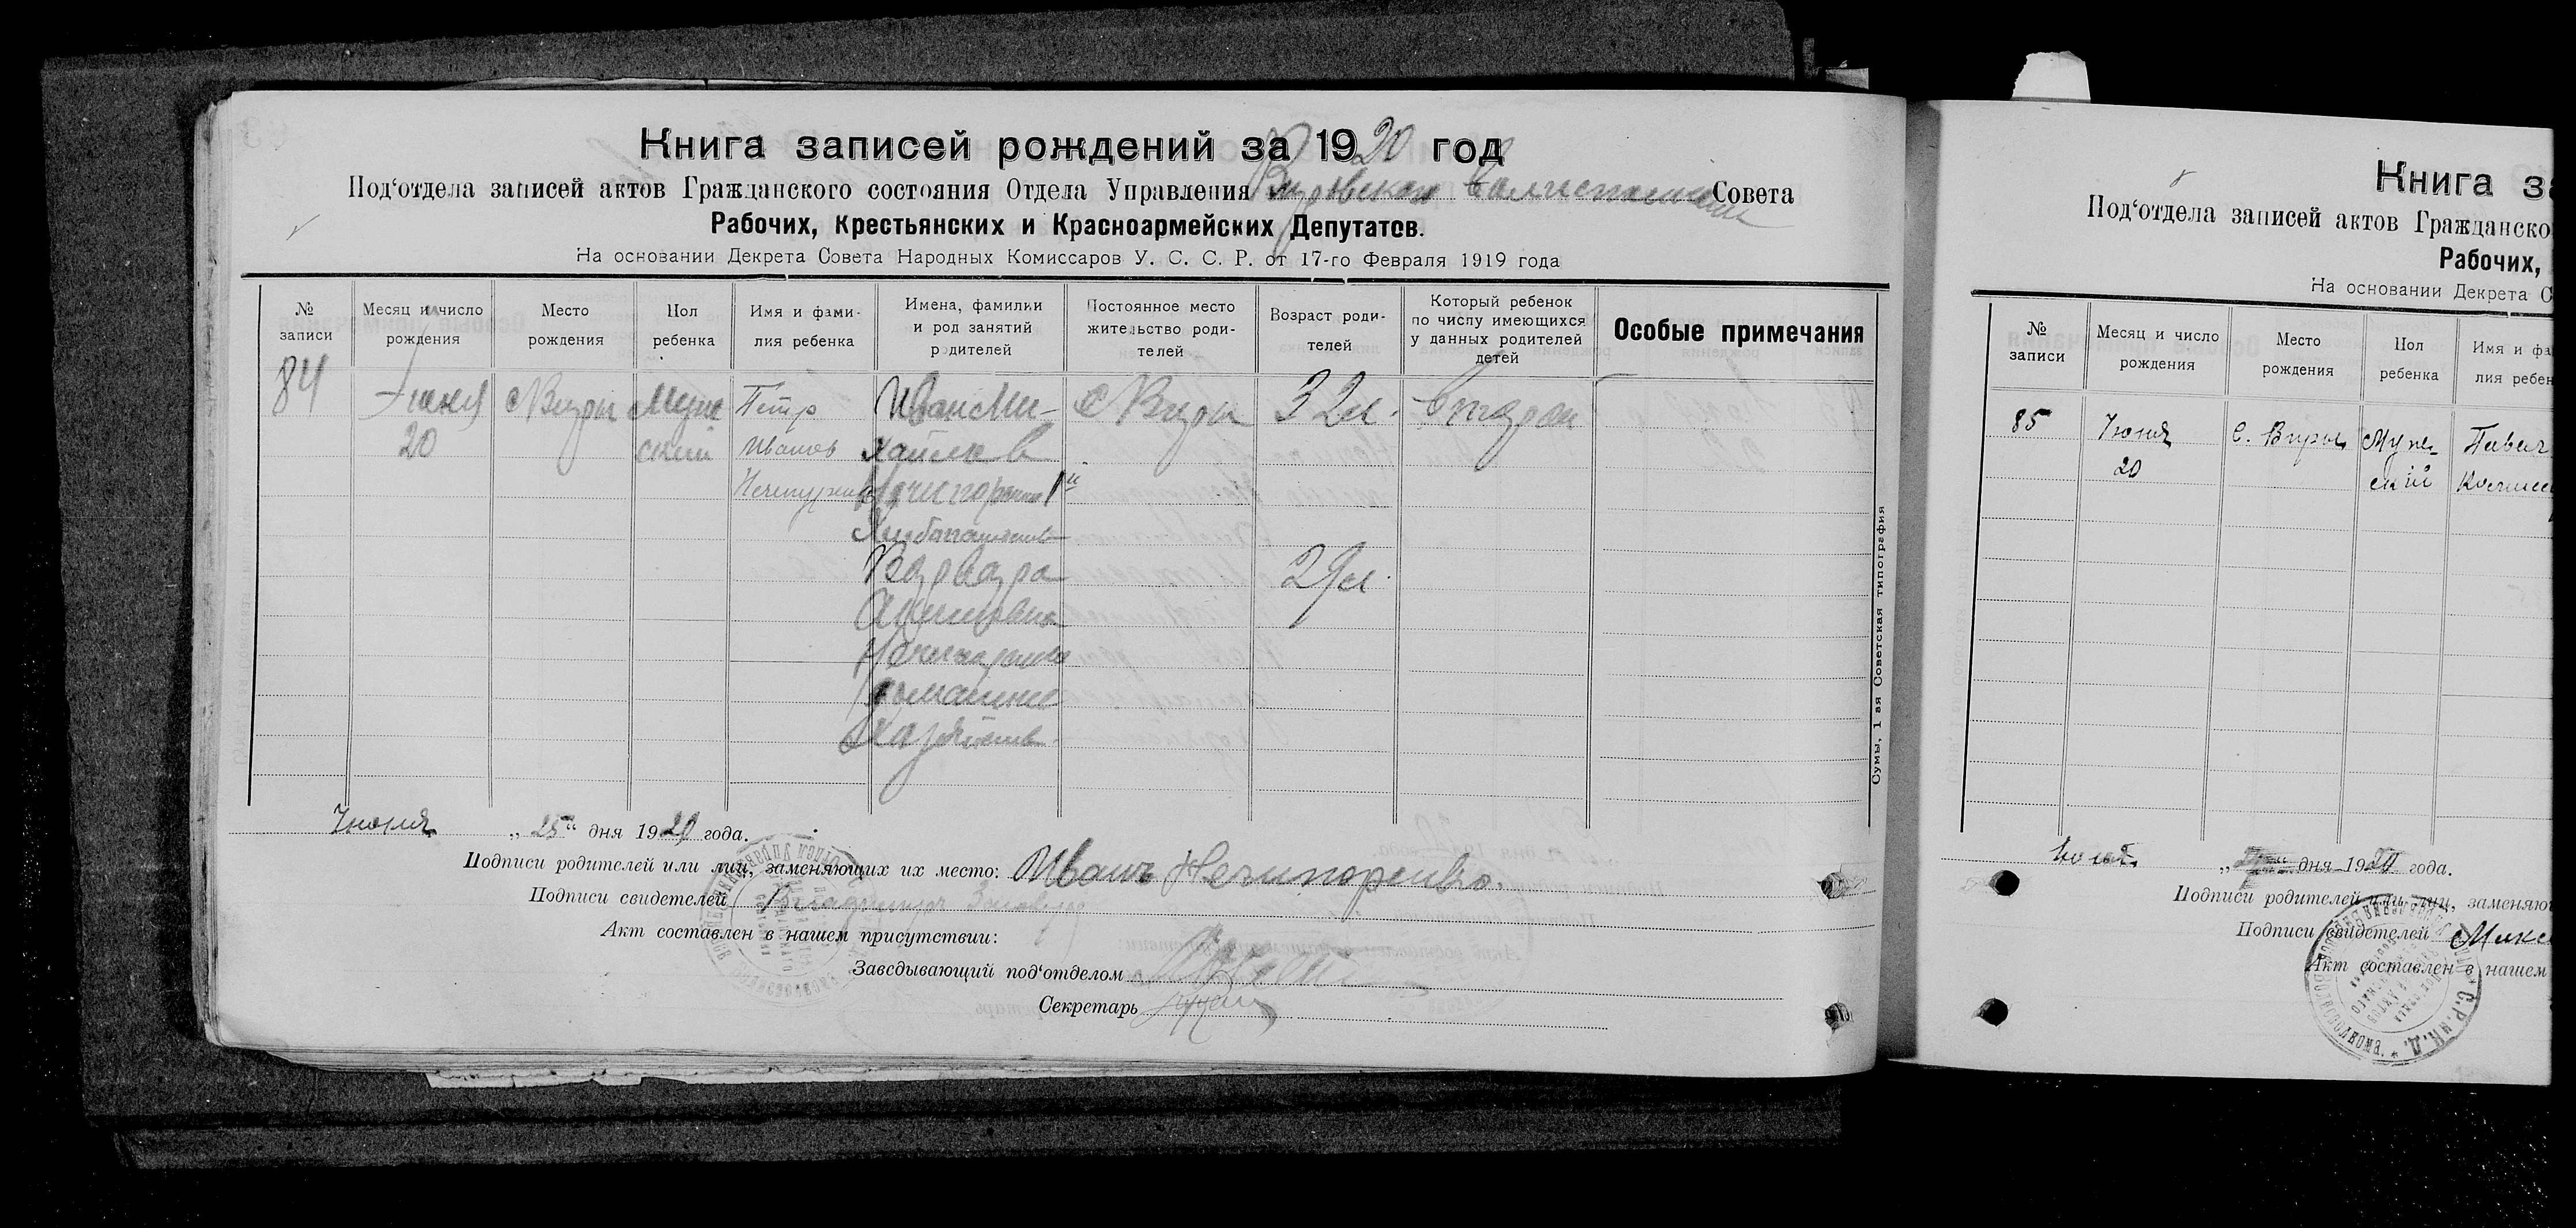 Книга записей рождений за 1920 год
Под‘отдела записей актов Гражданского состояния Отдела Управления Совета
Рабочих, Крестьянских и Красноармейских Депутатов.
На основании Декрета Совета Народных Комиссаров У. С. С. Р. от 17-го Февраля 1919 года
№ записи
Месяц и число рождения
Место рождения
Пол ребенка
Имя и фами- лия ребенка
Имена, фамилии и род занятий родителей
Постоянное место жительство роди- телей
Возраст роди- телей
Который ребенок по числу имеющихся у данных родителей детей
Особые примечания
84 Июня с Виры Муж Петр Иван Ми- с Виры 32 л.
20 ский Иванов хайлов
Нечипоренко 1й
Хлебопашество
29 л.
Нечипоренко
домашнее
хозяйство
Июня „25“ дня 1920 года.
Подписи родителей или лиц, заменяющих их место: Иванъ Нечипоренко.
Подписи свидетелей Владимиръ
Акт составлен в нашем присутствии:
Заведывающий под‘отделом
Секретарь
Сумы, 1 ая Советская типография
Книга за
Под‘отдела записей актов Гражданско
Рабочих,
На основании Декрета С
№ записи
Месяц и число рождения
Место рождения
Пол ребенка
Имя и фа лия ребен
85 Июня с. Виры Муже-
20 скій
дня 1920 года.
Подписи родителей или лиц, заменяю
Подписи свидетелей
Акт составлен в нашем